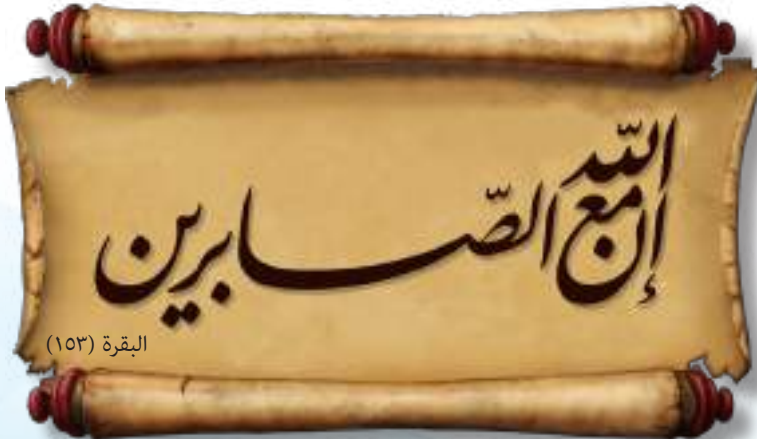 إن الله مع الصّابرين
البقرة (١٥٣)